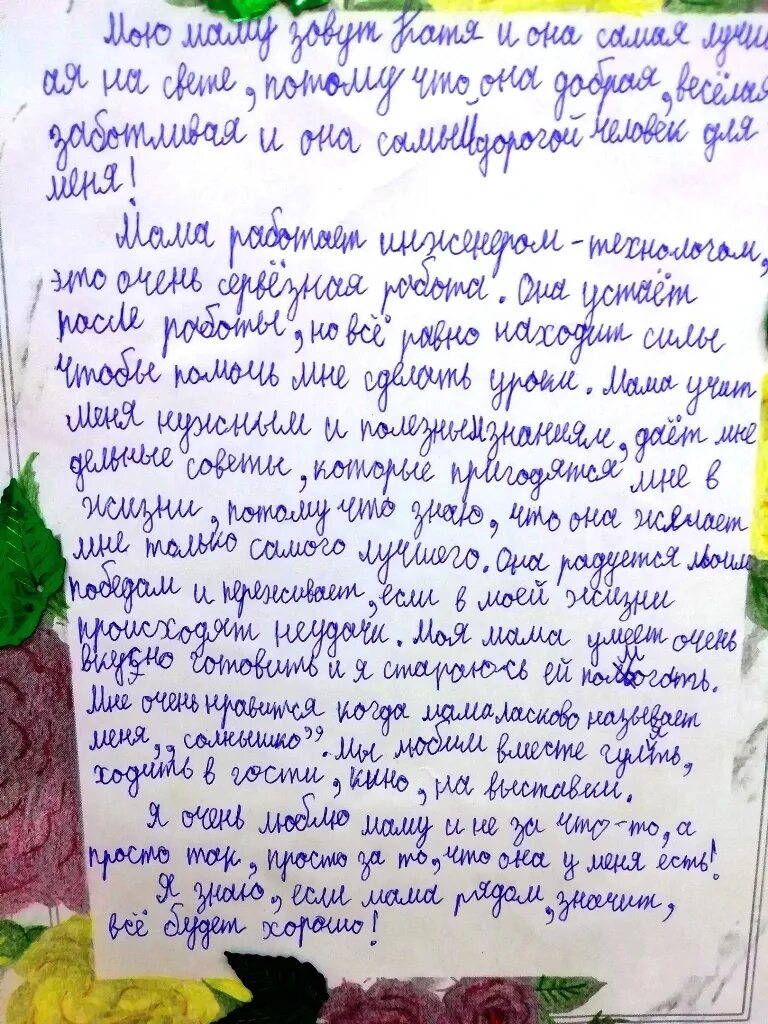 Мою маму зовут Катя и она самая лучш
ая на свете, потому что она добрая, весёлая
заботливая и она самый дорогой человек для
меня!
Мама работает инженером-технологом,
это очень серьёзная работа. Она устаёт
после работы, но всё равно находит силы
чтобы помочь мне сделать уроки. Мама учит
меня нужным и полезным знаниям, даёт мне
дельные советы, которые пригодятся мне в
жизни, потому что знаю, что она желает
мне только самого лучшего. Она радуется моим
победам и переживает, если в моей жизни
происходят неудачи. Моя мама умеет очень
вкусно готовить и я стараюсь ей помогать.
Мне очень нравится когда мама ласково называет
меня „солнышко”. Мы любим вместе гулять,
ходить в гости, кино, на выставки.
Я очень люблю маму и не за что-то, а
просто так, просто за то, что она у меня есть!
Я знаю, если мама рядом, значит,
всё будет хорошо!